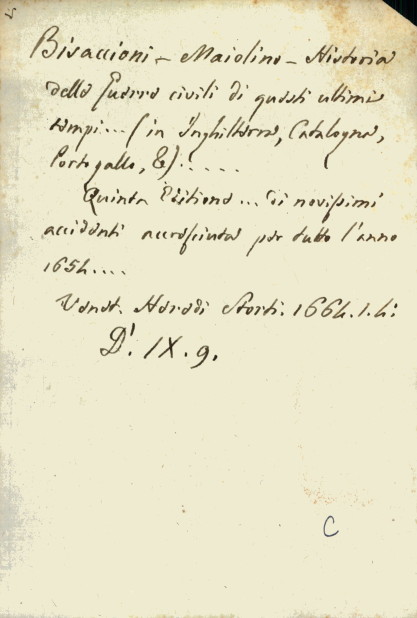 Bisaccioni - Maiolino - Historia
delle Guerre civili di questi ultimi
tempi... (in Inghilterra, Catalogna,
Portogallo, &).....
Quinta Editione... di novissimi
accidenti accresciuta per tutto l'anno
1654....
Venet. Heredi Storti. 1664. 1. 4:
D'. IX. 9.
C